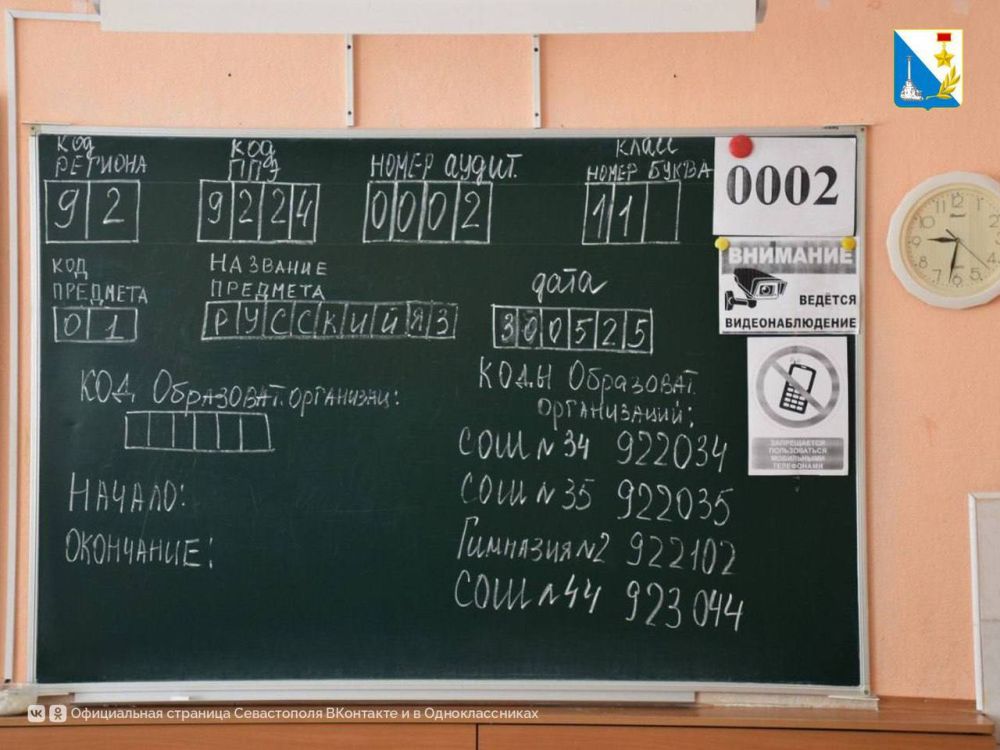 КОД
РЕГИОНА
92
КОД
ППЭ
9224
НОМЕР АУДИТ.
0002
КЛАСС
НОМЕР БУКВА
11
0002
ВНИМАНИЕ
ВЕДЁТСЯ
ВИДЕОНАБЛЮДЕНИЕ
КОД
ПРЕДМЕТА
01
НАЗВАНИЕ
ПРЕДМЕТА
РУССКИЙ ЯЗ
дата
300525
КОД Образоват. организац:
КОДЫ Образоват.
организаций:
СОШ №34 922034
СОШ №35 922035
Гимназия №2 922102
СОШ №44 923044
НАЧАЛО:
ОКОНЧАНИЕ:
ЗАПРЕЩАЕТСЯ
ПОЛЬЗОВАТЬСЯ
МОБИЛЬНЫМИ
ТЕЛЕФОНАМИ
12
1
2
3
4
5
6
7
8
9
10
11
Официальная страница Севастополя ВКонтакте и в Одноклассниках